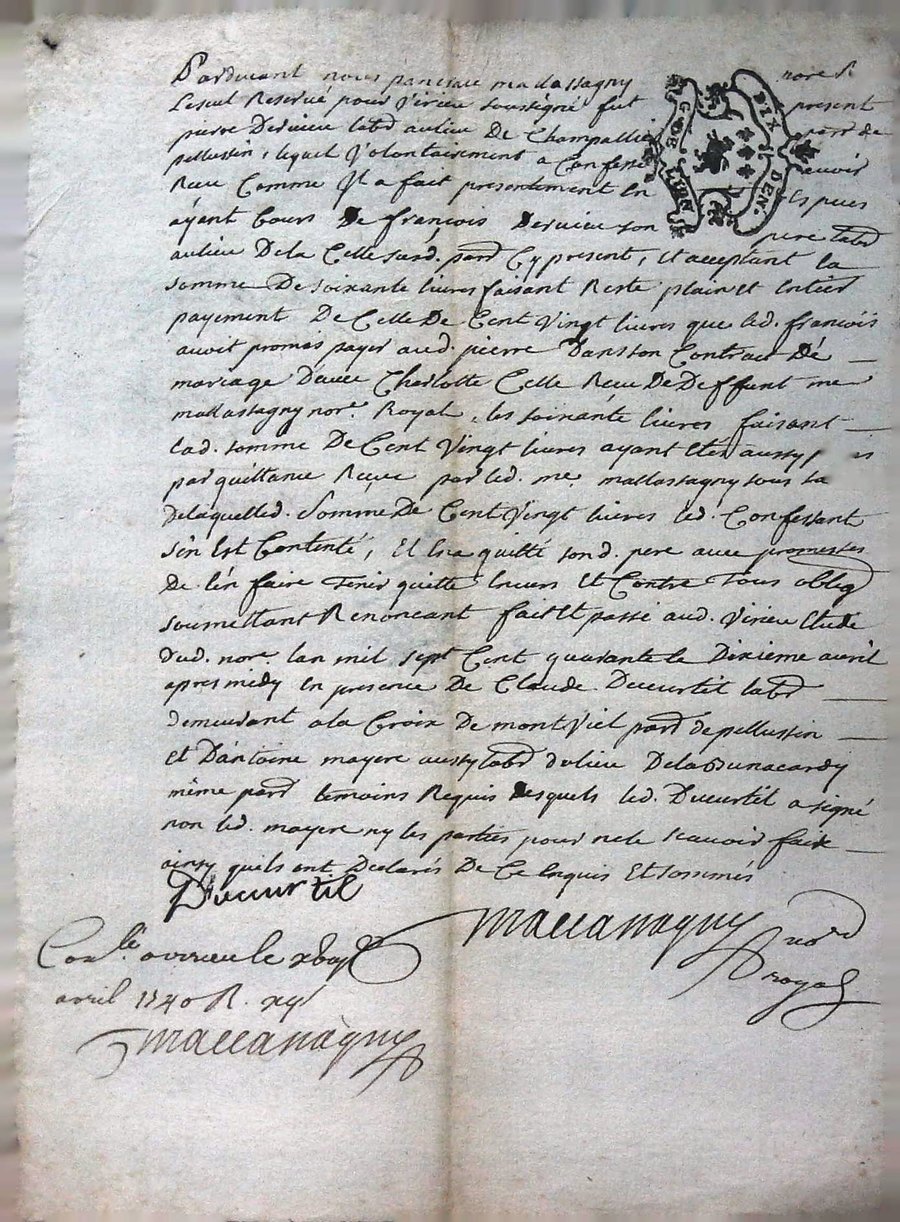 Pardevant nous pancrace mallassagny nore R
Leseul Reservé pour Virieu soussigné fut present
pierre Dervieu labd aulieu De Champallier parr de
pellussin, lequel Volontairement a Confessé avoir
Receu Comme Il a fait presentement En Espèces
ayant Cours De françois Dervieu son pere labd
aulieu Dela Celle susd. parr Cy present, et acceptant la
somme De soixante livres faisant Reste plain et Entier
payement De Celle De Cent Vingt livres que led. françois
avoit promis payer aud. pierre Dans son Contract De
mariage D'avec Charlotte Celle Receu De Deffunt me
mallassagny nore. Royal, les soixante livres faisant
lad. somme De Cent Vingt livres ayant Etés aussy
par quittance Receue par led. me. mallassagny sous la
Delaquelled. Somme De Cent Vingt livres led. Confessant
s'en Est Contenté, Et En a quitté sond. pere avec promesses
De l'en faire tenir quitte Envers Et Contre Tous oblig
soumettant Renonçant fait Et passé aud. Virieu Etude
dud. nore. lan mil sept Cent quarante le Dixieme avril
apres midy En presence De Claude Ducurtil labd
demeurant a la Croix De montViel parr de pellussin
Et D'antoine mayere aussy labd dulieu
même parr temoins Requis Desquels led. Ducurtil a signé
non led. mayere ny les parties pour ne le scauoir faire
ainsy quils ont Declarés De Ce Enquis Et sommés
Ducurtil
Maccanagny nore
royal
Conle. a virieu le
avril 1740 R.
Maccanagny
G. DE LION
DIX DEN.